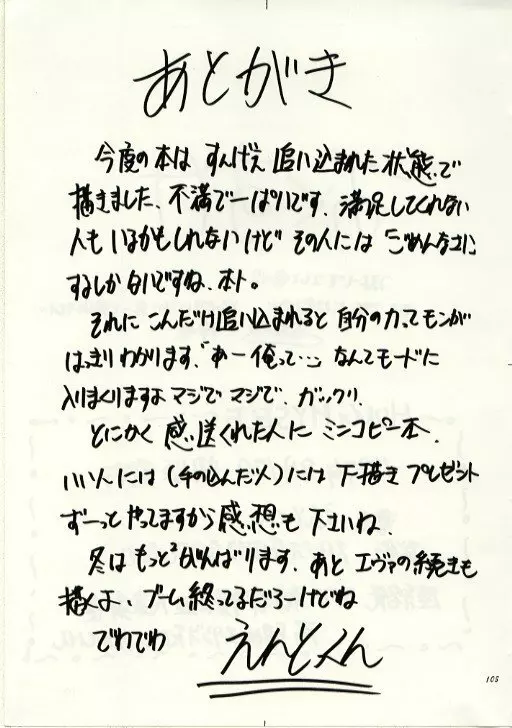 あとがき
今度の本は すんげえ 追い込まれた状態で
描きました、不満で一ぱいです、満足してくれない
人も いるかもしれないけど その人には「ごめんなさい」
するしかないですね、ホント。
それに こんだけ追い込まれると 自分の力ってモンが
はっきりわかります、「あー俺って…」なんてモードに
入りまくりますよ マジで マジで、ガックリ、
とにかく 感想送くれた人に ミニコピー本、
いい人には(手の込んだ人)には 下描き プレゼント
ずーっと やってますから 感想も 下さいね、
冬は もっと²がんばります、あと エヴァの続きも
描くよ、ブーム終ってるだろーけどね
でわでわ えんどくん
105